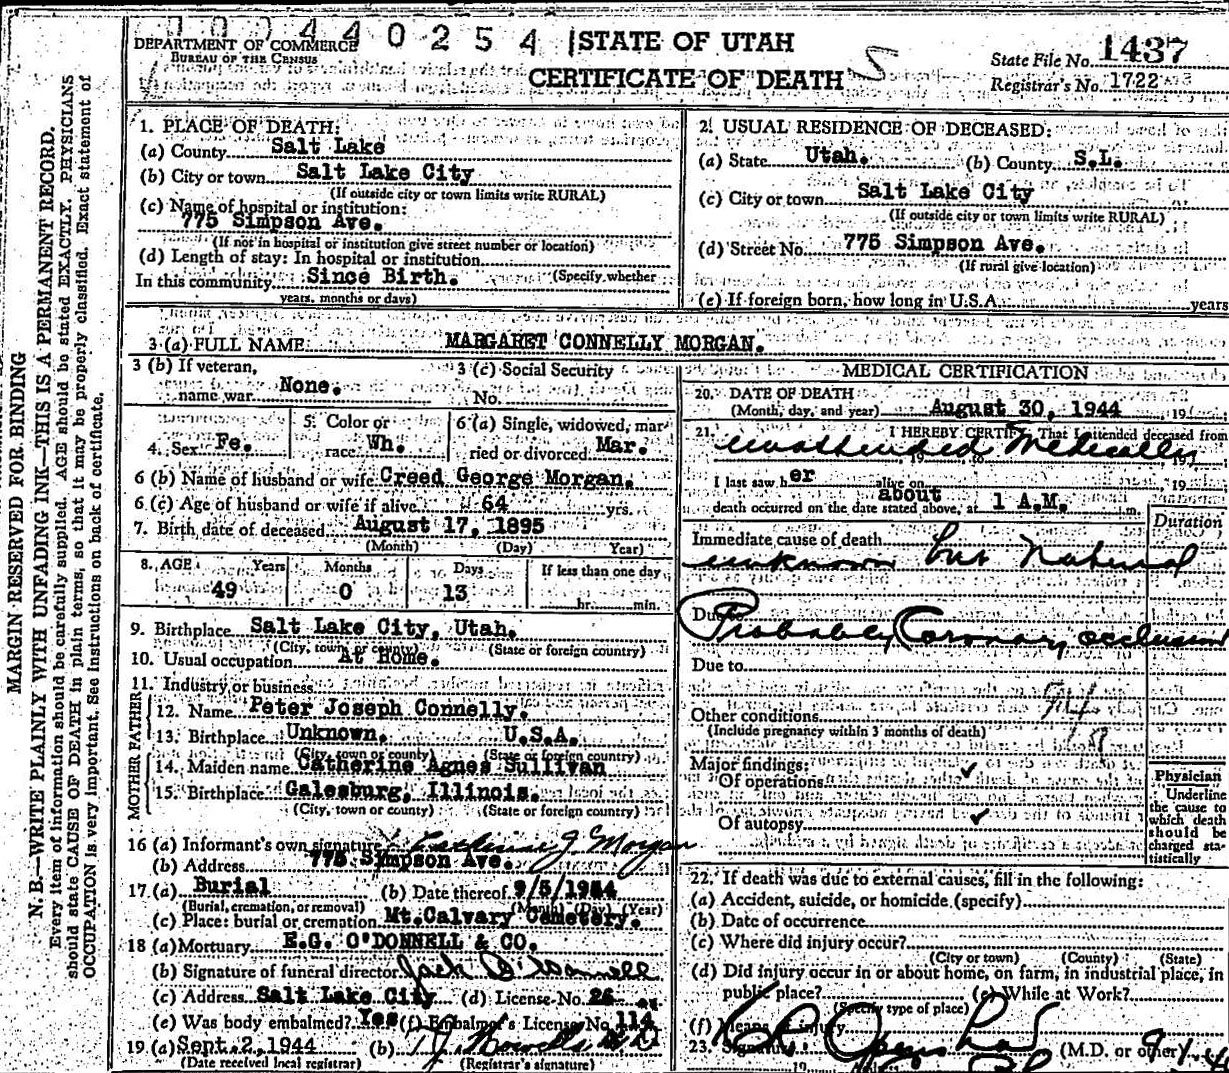 0 0 4 4 0 2 5 4
DEPARTMENT OF COMMERCE
BUREAU OF THE CENSUS
STATE OF UTAH
CERTIFICATE OF DEATH
State File No. 1437
Registrar's No. 1722
1. PLACE OF DEATH:
(a) County Salt Lake
(b) City or town Salt Lake City
(If outside city or town limits write RURAL)
(c) Name of hospital or institution:
775 Simpson Ave.
(If not in hospital or institution give street number or location)
(d) Length of stay: In hospital or institution
(Specify whether
In this community Since Birth.
years, months or days)
2. USUAL RESIDENCE OF DECEASED:
(a) State Utah. (b) County S.L.
(c) City or town Salt Lake City
(If outside city or town limits write RURAL)
(d) Street No. 775 Simpson Ave.
(If rural give location)
(e) If foreign born, how long in U.S.A. years
3 (a) FULL NAME MARGARET CONNELLY MORGAN.
3 (b) If veteran,
name war None.
3 (c) Social Security
No.
4. Sex Fe.
5. Color or
race Wh.
6 (a) Single, widowed, mar
ried or divorced Mar.
6 (b) Name of husband or wife Creed George Morgan.
6 (c) Age of husband or wife if alive 64 yrs.
7. Birth date of deceased August 17, 1895
(Month) (Day) Year)
8. AGE Years Months Days If less than one day
49 0 13 hr. min.
9. Birthplace Salt Lake City, Utah.
(City, town or county) (State or foreign country)
10. Usual occupation At Home.
11. Industry or business
FATHER
12. Name Peter Joseph Connelly.
13. Birthplace Unknown. U.S.A.
(City, town or county) (State or foreign country)
MOTHER
14. Maiden name Catherine Agnes Sullivan
15. Birthplace Galesburg, Illinois.
(City, town or county) (State or foreign country)
16 (a) Informant's own signature Catherine J. Morgan
(b) Address 775 Simpson Ave.
17 (a) Burial (b) Date thereof 9/5/1944
(Burial, cremation, or removal) (Month) (Day) (Year)
(c) Place: burial or cremation Mt. Calvary Cemetery.
18 (a) Mortuary E.G. O'DONNELL & CO.
(b) Signature of funeral director Jack O'Donnell
(c) Address Salt Lake City (d) License No. 26
(e) Was body embalmed? Yes (f) Embalmer's License No. 114
19 (a) Sept. 2, 1944 (b)
(Date received local registrar) (Registrar's signature)
MEDICAL CERTIFICATION
20. DATE OF DEATH
(Month, day, and year) August 30, 1944, 19
21. I HEREBY CERTIFY, That I attended deceased from
unattended Medically
I last saw her alive on , 19
about
death occurred on the date stated above, at 1 A.M. m.
Duration
Immediate cause of death
unknown but Natural
Due to
Probably Coronary occlusion
Due to
Other conditions
(Include pregnancy within 3 months of death)
Major findings:
Of operations
Of autopsy
Physician
Underline
the cause to
which death
should be
charged sta-
tistically
22. If death was due to external causes, fill in the following:
(a) Accident, suicide, or homicide (specify)
(b) Date of occurrence
(c) Where did injury occur?
(City or town) (County) (State)
(d) Did injury occur in or about home, on farm, in industrial place, in
public place? (e) While at Work?
(Specify type of place)
(f) Means of injury
23. Signature (M.D. or other)
MARGIN RESERVED FOR BINDING
N. B.—WRITE PLAINLY WITH UNFADING INK—THIS IS A PERMANENT RECORD.
Every item of information should be carefully supplied. AGE should be stated EXACTLY. PHYSICIANS
should state CAUSE OF DEATH in plain terms, so that it may be properly classified. Exact statement of
OCCUPATION is very important. See instructions on back of certificate.